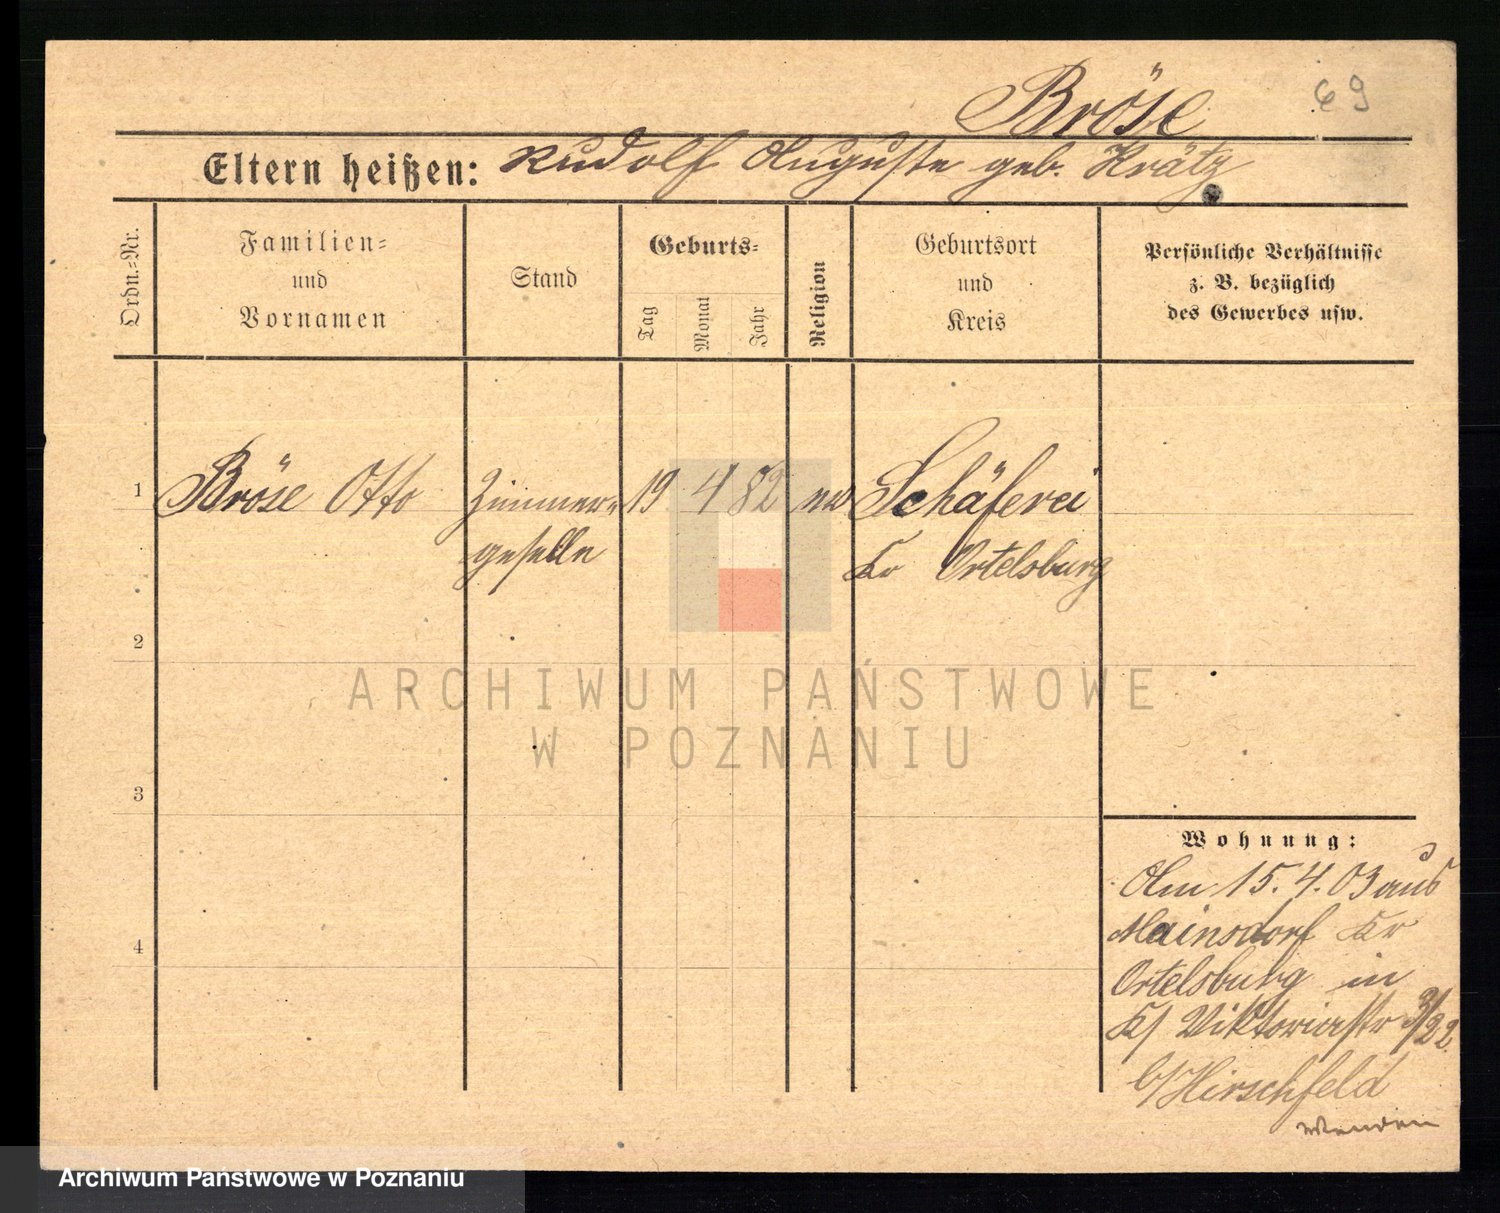 Bröse
69
Eltern heißen: Rudolf Auguste geb. Krätz
Ordn.-Nr.
Familien-
und
Vornamen
Stand
Geburts-
Tag
Monat
Jahr
Religion
Geburtsort
und
Kreis
Persönliche Verhältnisse
z. B. bezüglich
des Gewerbes usw.
1
Bröse Otto
Zimmer-
geselle
19 4 82
Schäferei
Kr Ortelsburg
2
3
4
ARCHIWUM PAŃSTWOWE
W POZNANIU
Wohnung:
Am 15.4.03 aus
Mainsdorf Kr
Ortelsburg in
Viktoriastr
b/Hirschfeld
Wenden
Archiwum Państwowe w Poznaniu